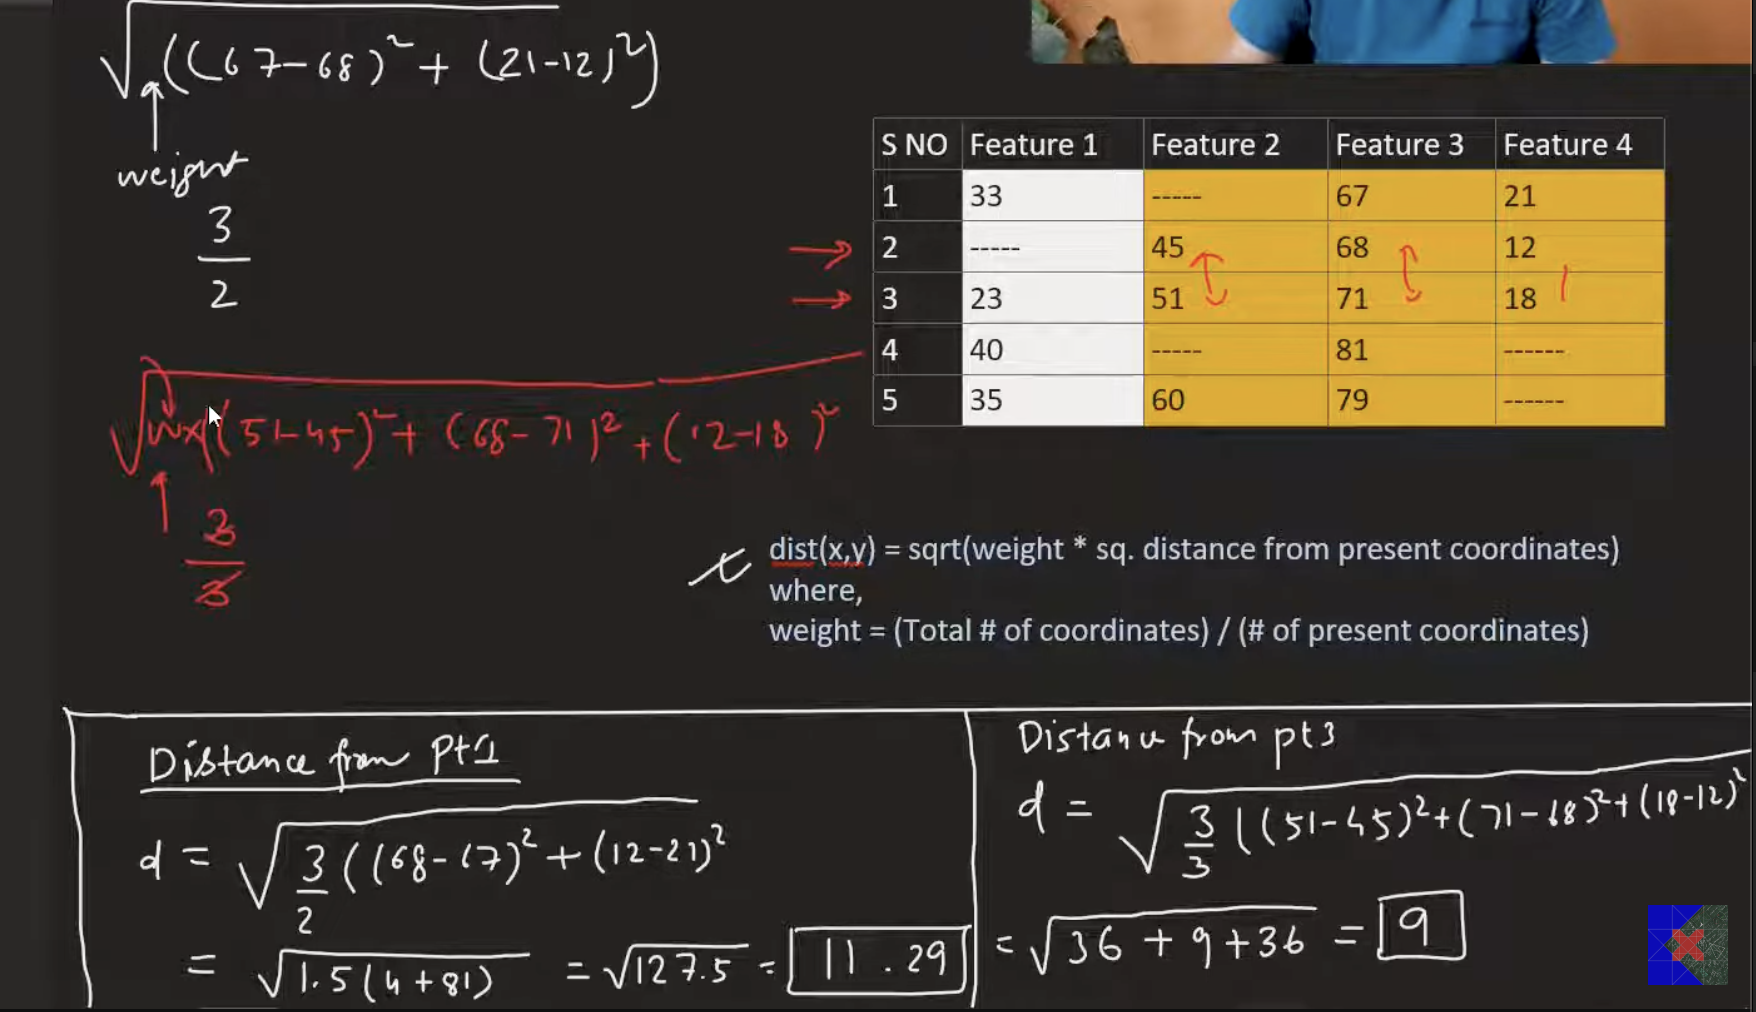 √((67-68)² + (21-12)²)
weight
3
2
S NO Feature 1 Feature 2 Feature 3 Feature 4
1 33 ----- 67 21
2 ----- 45 68 12
3 23 51 71 18
4 40 ----- 81 ------
5 35 60 79 ------
√w×((51-45)² + (68-71)² + (12-18)²
3
3
dist(x,y) = sqrt(weight * sq. distance from present coordinates)
where,
weight = (Total # of coordinates) / (# of present coordinates)
Distance from Pt1
d = √3/2 ((68-67)² + (12-21)²
= √1.5(4+81) = √127.5 = 11.29
Distance from pt3
d = √3/3 ((51-45)²+(71-68)²+(18-12)²
= √36 + 9 + 36 = 9